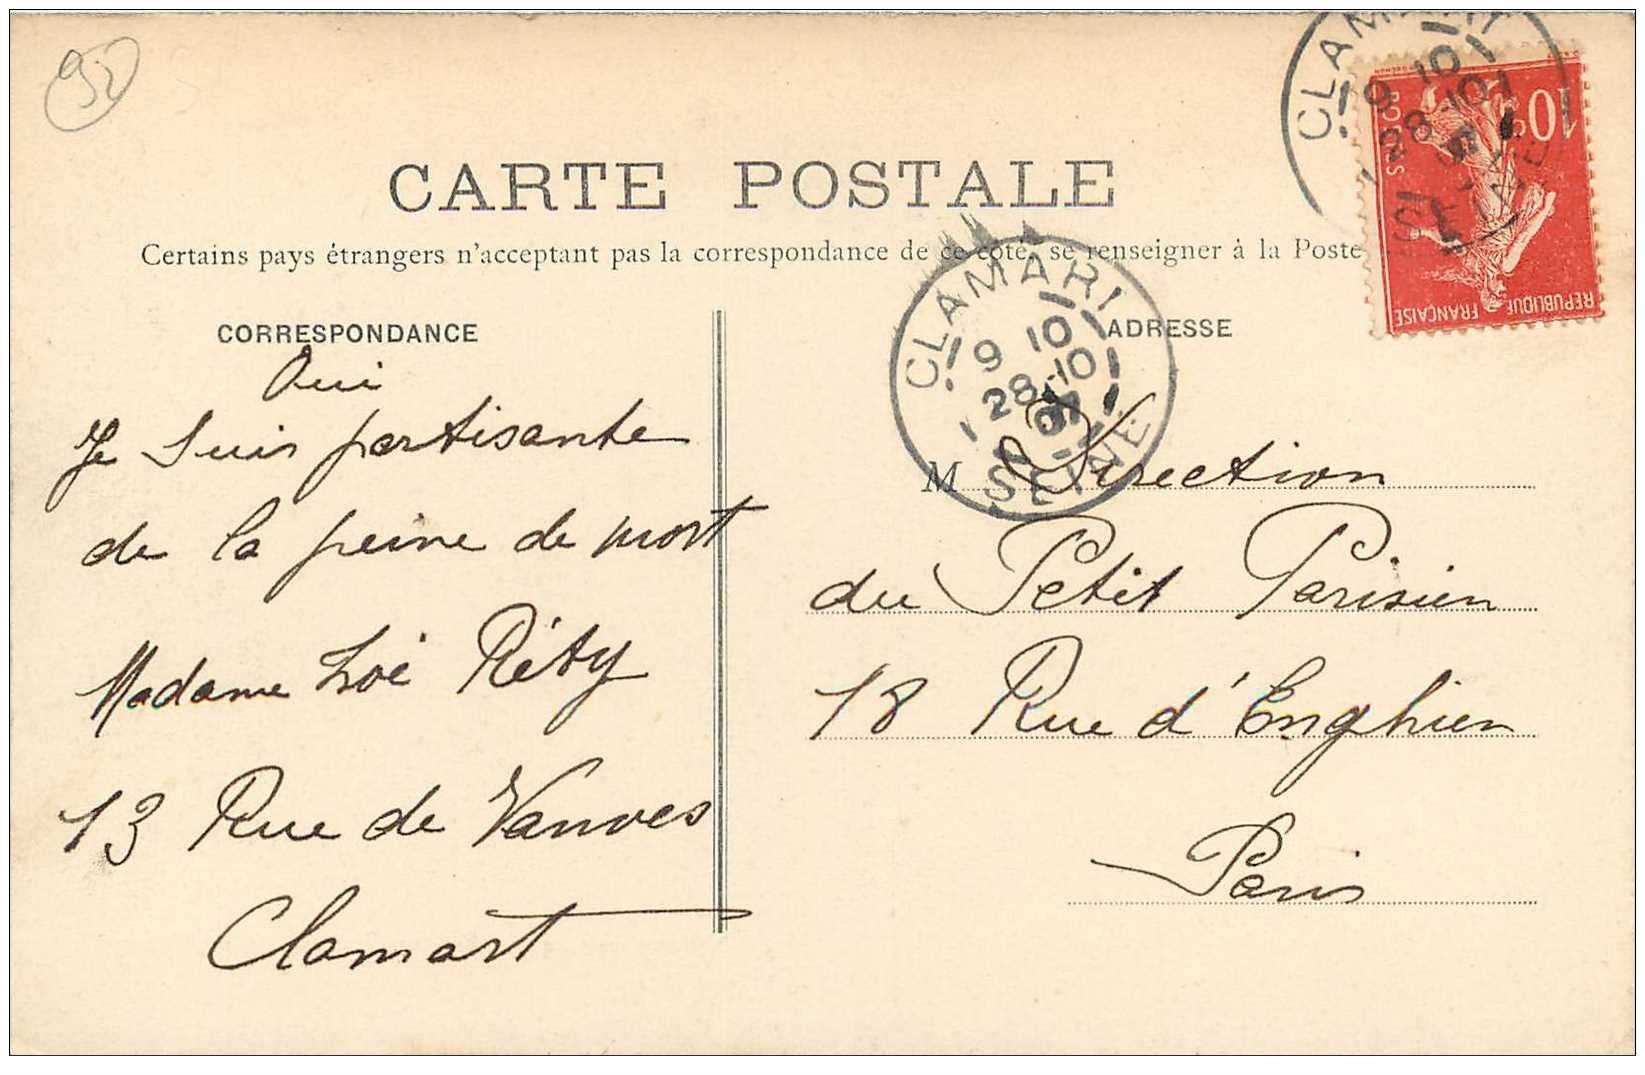 92
CARTE POSTALE
Certains pays étrangers n'acceptant pas la correspondance de ce côté, se renseigner à la Poste
CORRESPONDANCE
Oui
Je suis partisante
de la peine de mort
Madame Zoé Réty
13 Rue de Vanves
Clamart
ADRESSE
M Direction
du Petit Parisien
18 Rue d'Enghien
Paris
CLAMART
9 10
28-10
07
SEINE
CLAMART
9 10
28-10
07
SEINE
10c
POSTES
REPUBLIQUE FRANÇAISE